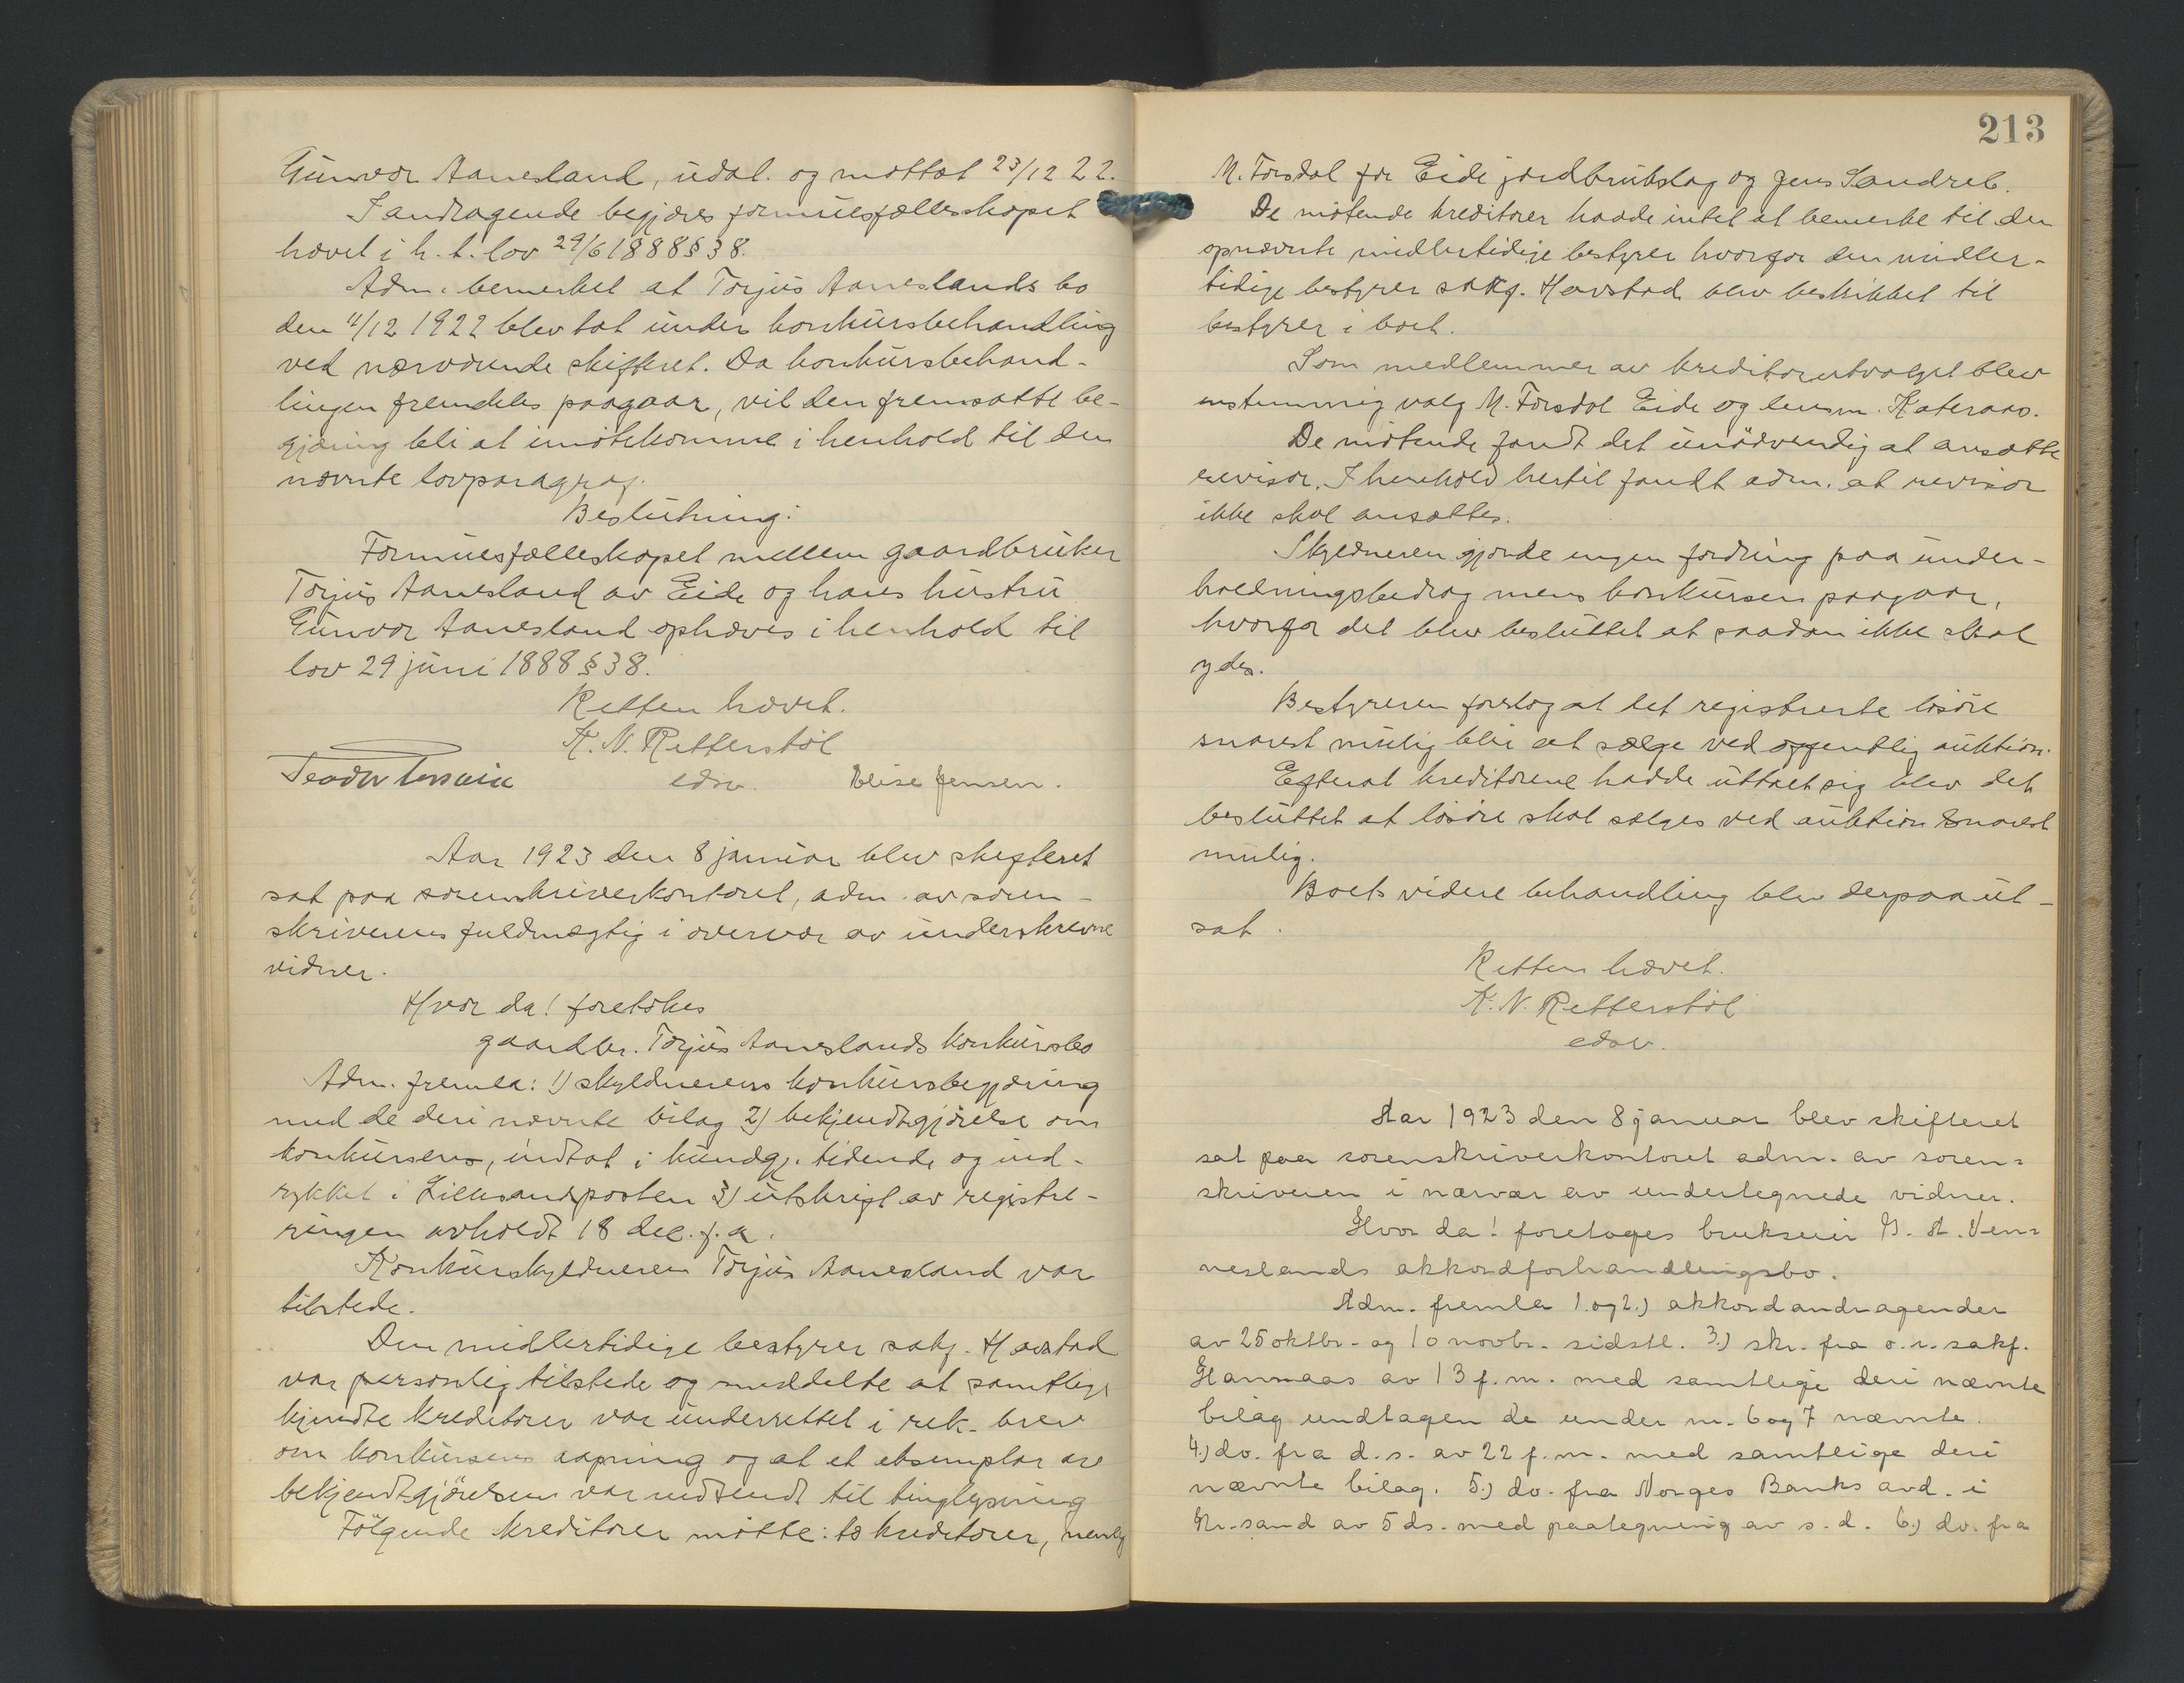 Gunvor Aanesland, udat. og mottat 23/12 22.
I andragende begjæres formuesfællesskapet
hævet i h. t. lov 29/6 1888 § 38.
Adm. bemerket at Torjus Aaneslands bo
den 11/12 1922 blev tat under konkursbehandling
ved nærværende skifteret. Da konkursbehand-
lingen fremdeles paagaar, vil den fremsatte be-
gjæring bli at imøtekomme i henhold til den
nævnte lovparagraf.
Beslutning:
Formuesfælleskapet mellem gaardbruker
Torjus Aanesland av Eide og hans hustru
Gunvor Aanesland ophæves i henhold til
lov 29 juni 1888 § 38.
Retten hævet.
K. N. Retterstøl
edsv. Elise Jensen.
Aar 1923 den 8 januar blev skifteret
sat paa sorenskriverkontoret, adm. av soren-
skriverens fuldmægtig i overvær av underskrevne
vidner.
Hvor da! foretokes
gaardbr. Torjus Aaneslands konkursbo
Adm. fremla: 1) skyldnerens konkursbegjæring
med de deri nævnte bilag 2) bekjendtgjørelse om
konkursen, indtat i kundgj. tidende og ind-
rykket i Lillesandsposten 3) utskrift av registre-
ringen avholdt 18 dec. f. a.
Konkursskyldneren Torjus Aanesland var
tilstede.
Den midlertidige bestyrer sakf. Havstad
var personlig tilstede og meddelte at samtlige
kjendte kreditorer var underrettet i rek. brev
om konkursens aapning og at et eksemplar av
bekjendtgjørelsen var indsendt til tinglysning
Følgende kreditorer møtte: to kreditorer, nemlig
213
M. Forsdal for Eide jordbrukslag og Jens Sandreb.
De møtende kreditorer hadde intet at bemerke til den
opnævnte midlertidige bestyrer hvorfor den midler-
tidige bestyrer sakf. Havstad blev beskikket til
bestyrer i boet.
Som medlemmer av kreditorutvalget blev
enstemmig valg M. Forsdal Eide og lensm. Kateraas.
De møtende fandt det unødvendig at ansætte
revisor. I henhold hertil fandt adm. at revisor
ikke skal ansættes.
Skyldneren gjorde ingen fordring paa under-
holdningsbedrag mens konkursen paagaar,
hvorfor det blev besluttet at saadan ikke skal
ydes.
Bestyreren foreslog at det registrerte løsøre
snarest mulig blir at sælge ved offentlig auktion.
Efterat kreditorene hadde uttalt sig blev det
besluttet at løsøre skal sælges ved auktion snarest
mulig.
Boets videre behandling blev derpaa ut-
sat.
Retten hævet.
K. N. Retterstøl
edsv.
Aar 1923 den 8 januar blev skifteret
sat paa sorenskriverkontoret adm. av soren-
skriveren i nærvær av undertegnede vidner.
Hvor da! foretoges brukseier B. A. Ven-
neslands akkordforhandlingsbo.
Adm. fremla 1. og 2.) akkordandragender
av 25 oktbr. og 10 novbr. sidstl. 3.) skr. fra o.r. sakf.
Hannaas av 13 f. m. med samtlige deri nævnte
bilag undtagen de under nr. 6 og 7 nævnte.
4.) do. fra d. s. av 22 f. m. med samtlige deri
nævnte bilag. 5.) do. fra Norges Banks avd. i
Kr.sand av 5 ds. med paategning av s. d. 6.) do. fra